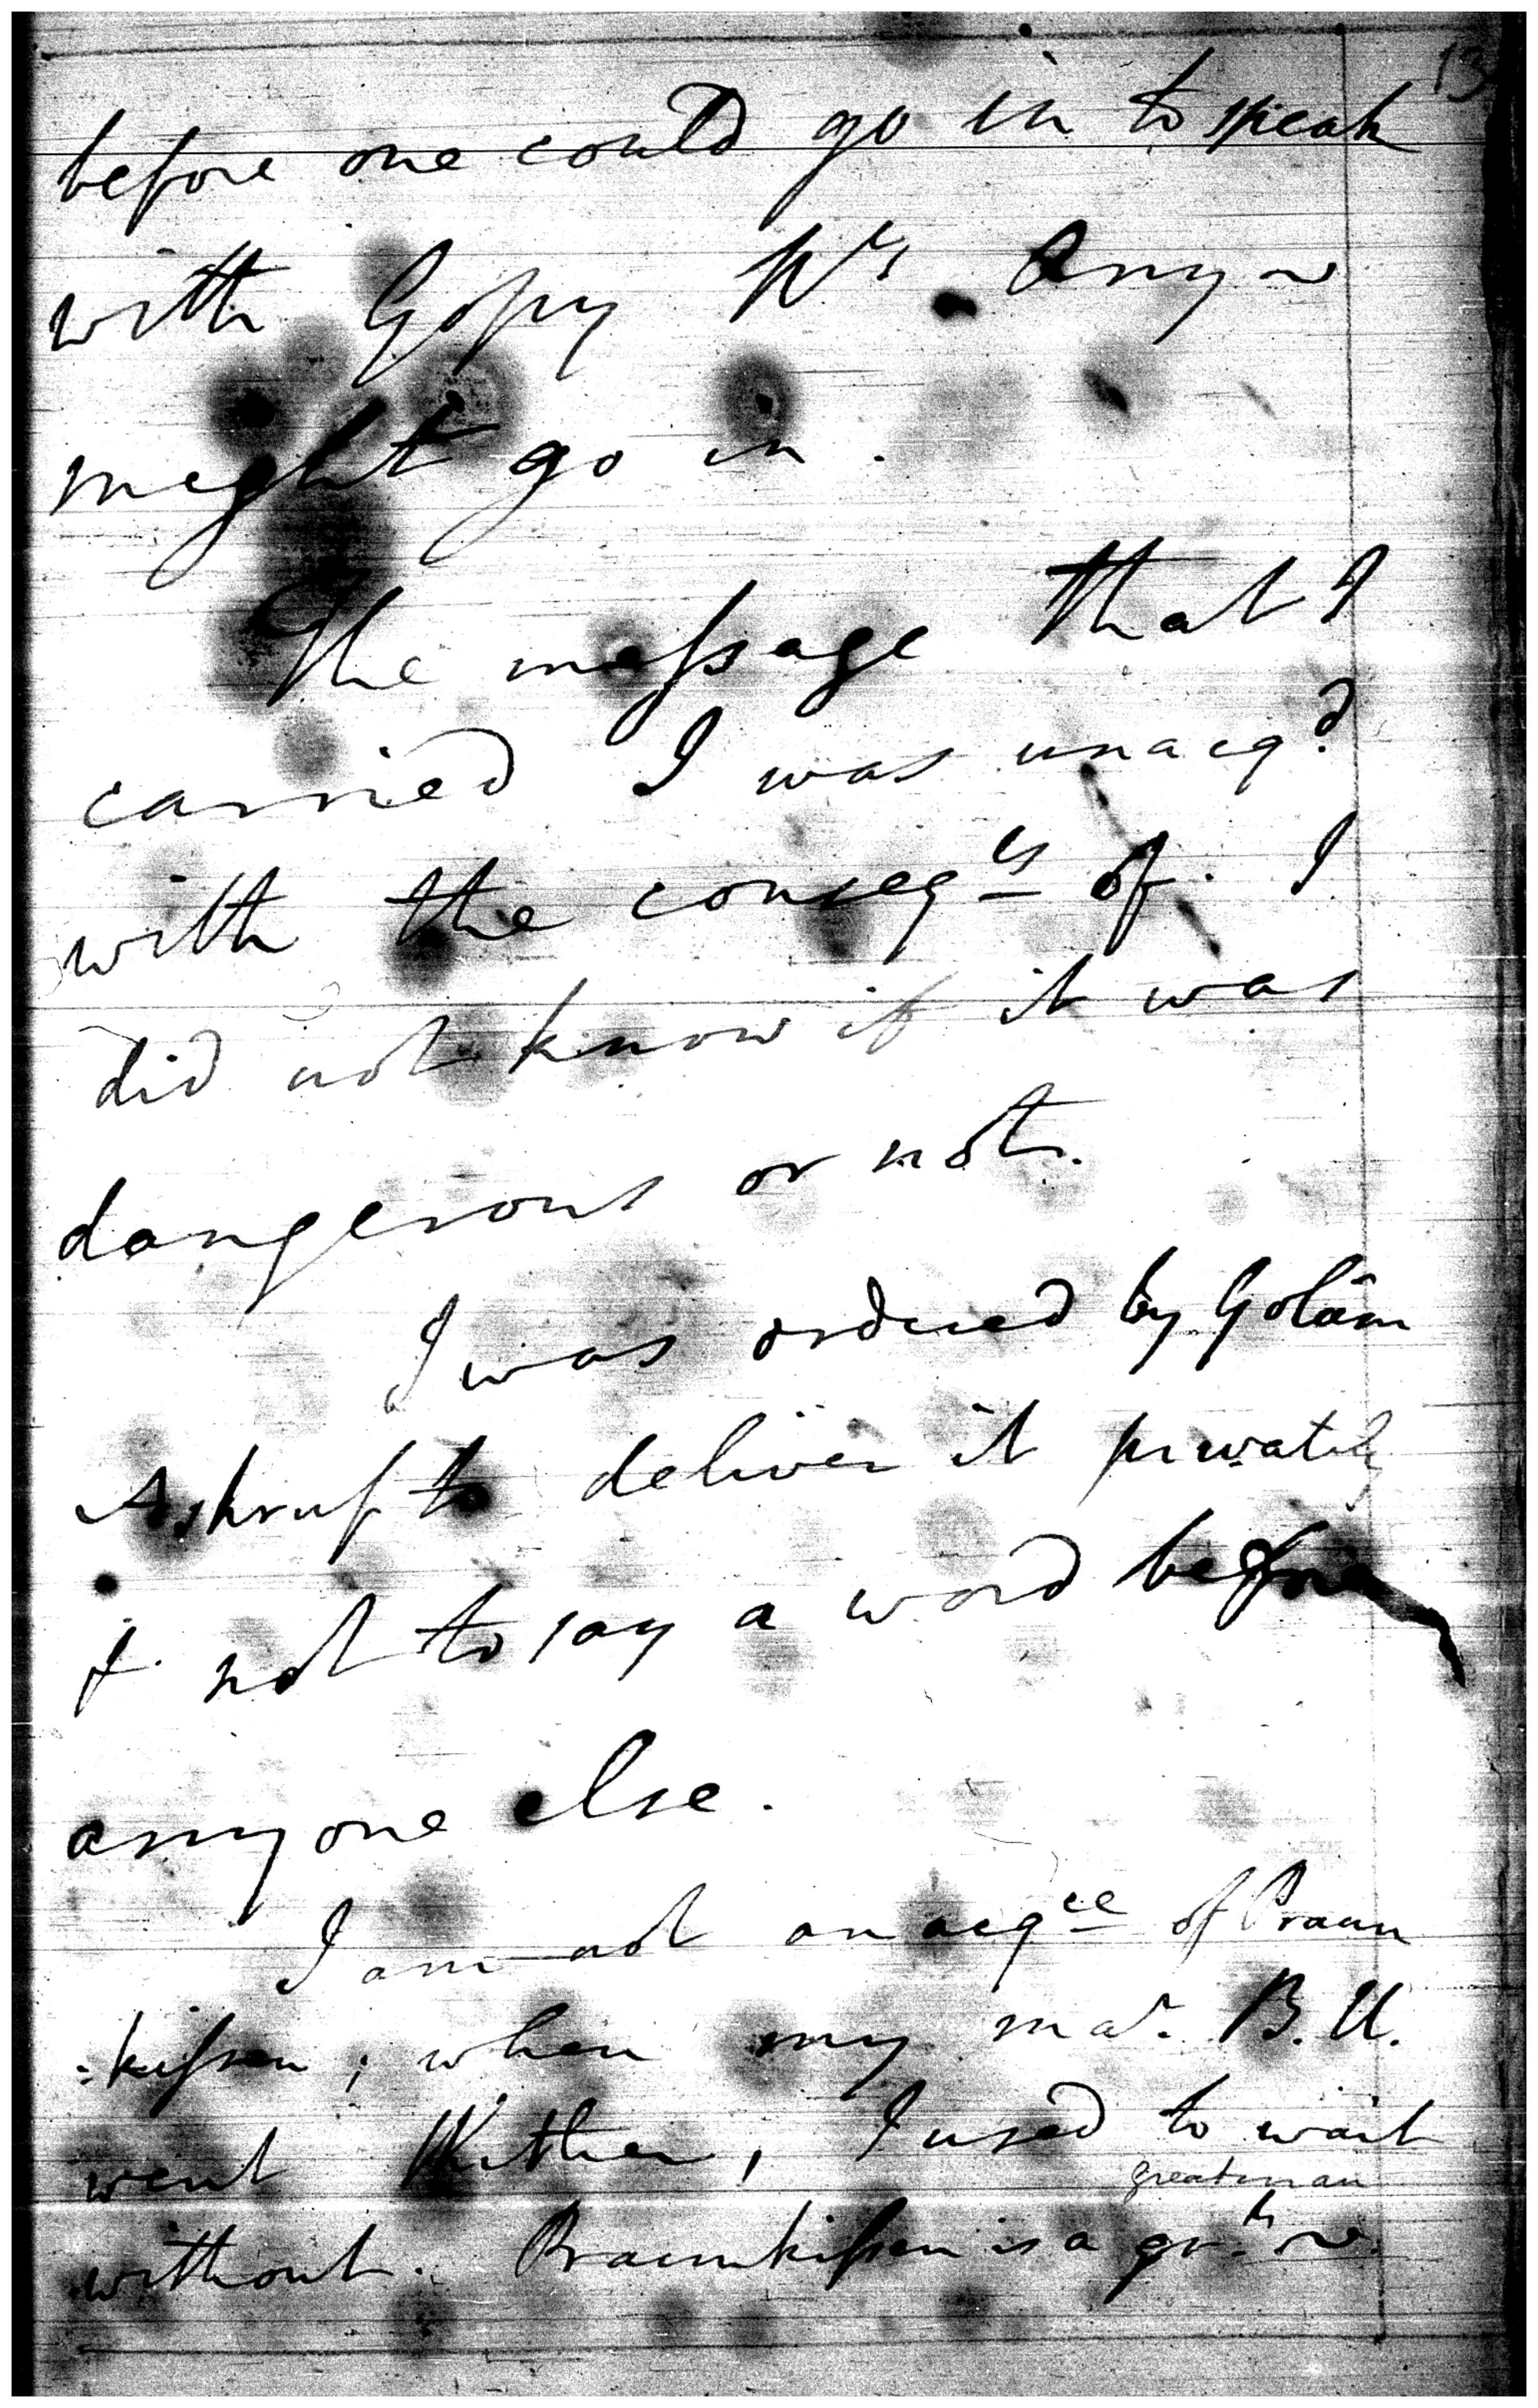 13
before one could go in to speak
with Gopy N^s Any ~
might go in.
The message that I
carried I was unacq^d
with the conseq^es of. I
did not know if it was
dangerous or not.
I was ordered by Golâm
Ashruf to deliver it privately
& not to say a word before
anyone else.
I am not an acq^ce of Praun
:kissen; when my ma^r. B.U.
went thither, I used to wait
greatman
without. Praunkissen is a gr^t ~